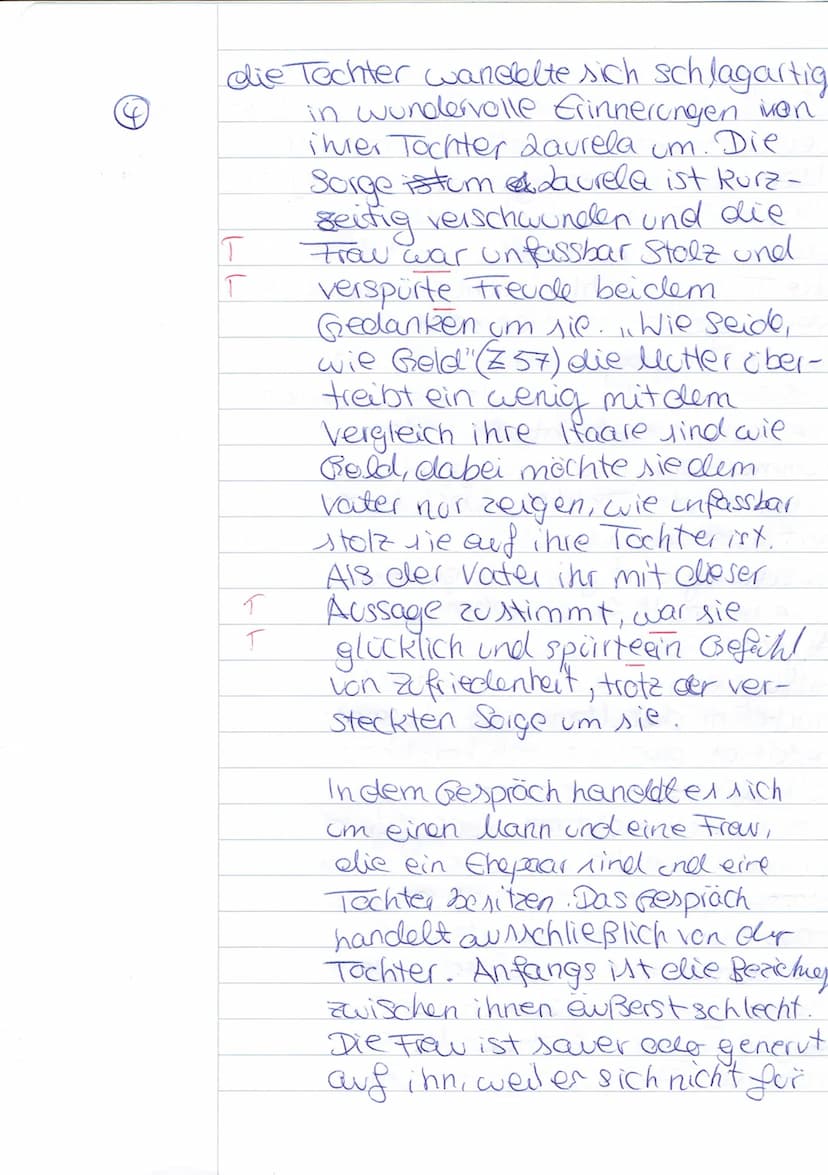 die Tochter wandelte sich schlagartig
④ in wundervolle Erinnerungen von
ihrer Tochter Laurela um. Die
Sorge ist um Laurela ist kurz-
zeitig verschwunden und die
T Frau war unfassbar Stolz und
T verspürte Freude bei dem
Gedanken um sie. „Wie Seide,
wie Gold" (Z 57) die Mutter über-
treibt ein wenig mit dem
Vergleich ihre Haare sind wie
Gold, dabei möchte sie dem
Vater nur zeigen, wie unfassbar
stolz sie auf ihre Tochter ist.
Als der Vater ihr mit dieser
T Aussage zustimmt, war sie
T glücklich und spürte ein Gefühl
von Zufriedenheit, trotz der ver-
steckten Sorge um sie.
In dem Gespräch handelt es sich
um einen Mann und eine Frau,
die ein Ehepaar sind und eine
Tochter besitzen. Das Gespräch
handelt ausschließlich von der
Tochter. Anfangs ist die Beziehung
zwischen ihnen äußerst schlecht.
Die Frau ist sauer oder genervt
auf ihn, weil er sich nicht für